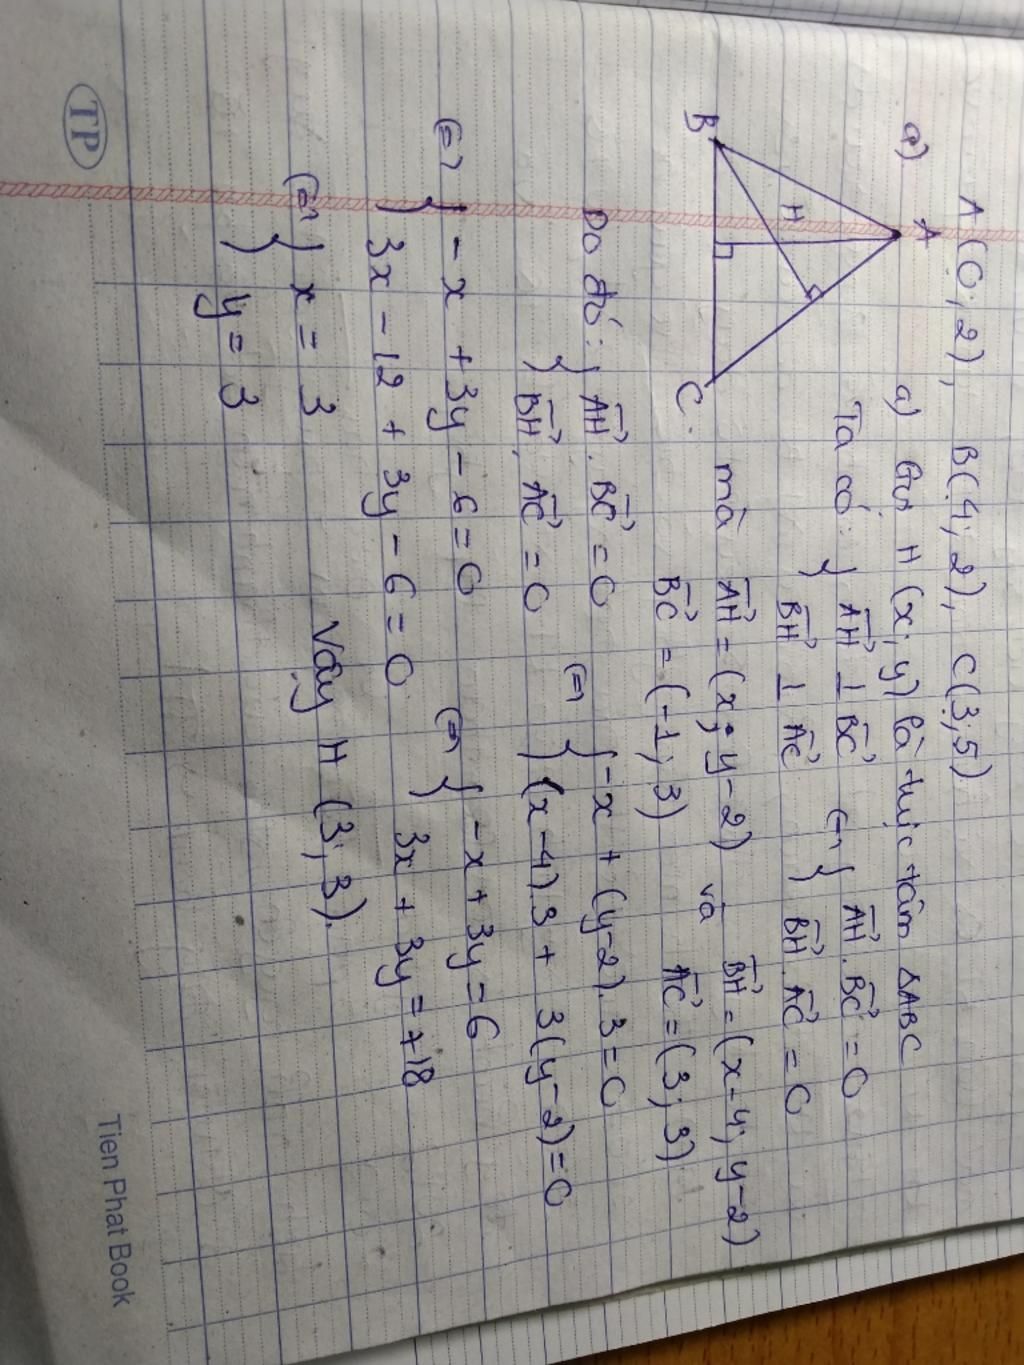 A(0; 2), B(4; 2), C(3; 5)
a)
A
B
H
C
a) Gọi H (x; y) là trực tâm ΔABC
Ta có: { AH⃗ ⊥ BC⃗ (=) { AH⃗ . BC⃗ = 0
BH⃗ ⊥ AC⃗ BH⃗ . AC⃗ = 0
mà AH⃗ = (x; y-2) và BH⃗ = (x-4; y-2)
BC⃗ = (-1; 3) AC⃗ = (3; 3)
Do đó: { AH⃗ . BC⃗ = 0 (=) { -x + (y-2). 3 = 0
BH⃗ . AC⃗ = 0 (x-4).3 + 3(y-2) = 0
(=) { -x + 3y - 6 = 0 (=) { -x + 3y = 6
3x - 12 + 3y - 6 = 0 3x + 3y = +18
(=) { x = 3 Vậy H (3; 3).
y = 3
TP
Tien Phat Book